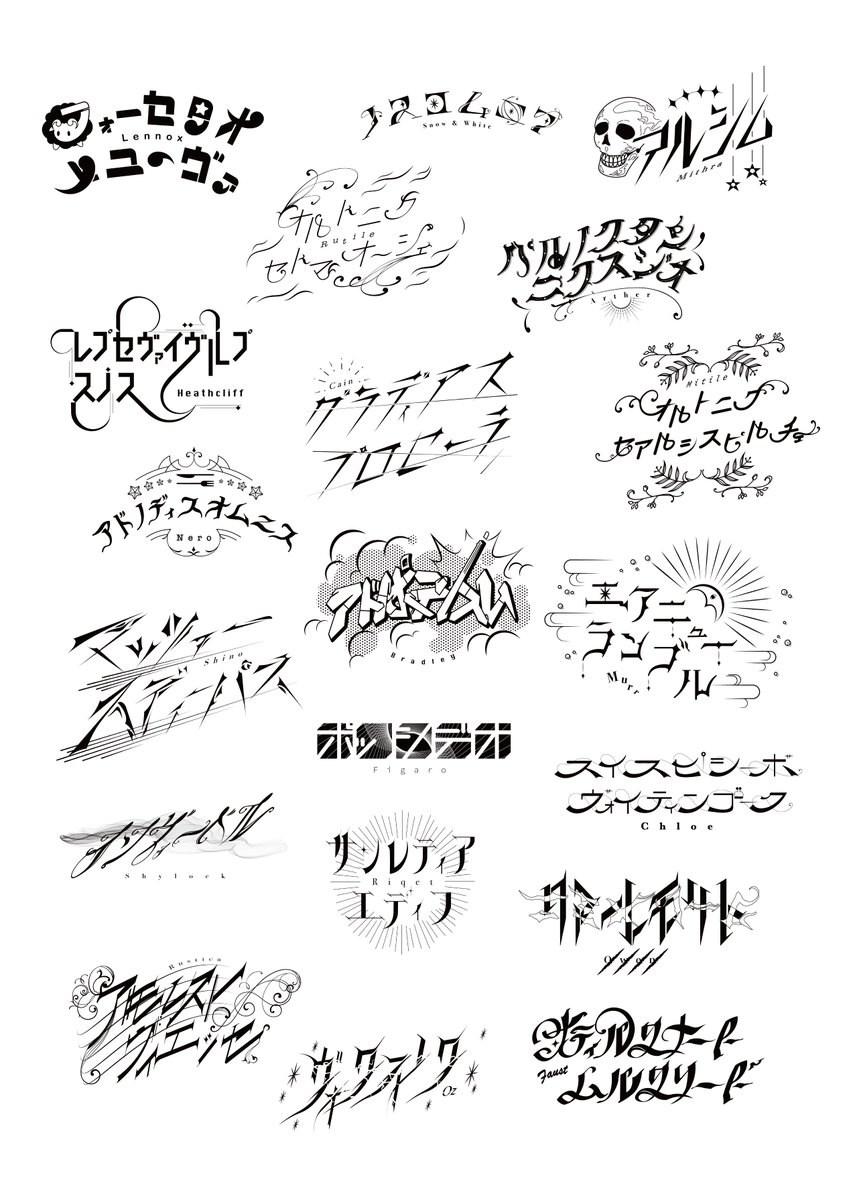 フォーセタオ
Lennox
メユーノヴァ
ノスコムニア
Snow & White
アルシム
Mithra
オルトニク
Rutile
セトマオージェ
パルノクタン
ニクスジオ
Arther
レプセヴァイヴルプ
スノス
Heathcliff
Cain
グラディアス
プロセーラ
Mitile
オルトニク
セアルシスピルチェ
アドノディスオムニス
Nero
アドポテンスム
Bradley
エアニュー
ランブル
Murr
マッツァー
Shino
スディーパス
ポッシデオ
Figaro
スイスピシーボ
ヴォイティンゴーク
Chloe
Shylock
サンレティア
Riqet
エディフ
クアーレモリト
Owen
Rustica
アモレスト
ヴィエッセ
ヴォクスノク
Oz
サティルクナート
Faust
ムルクリード